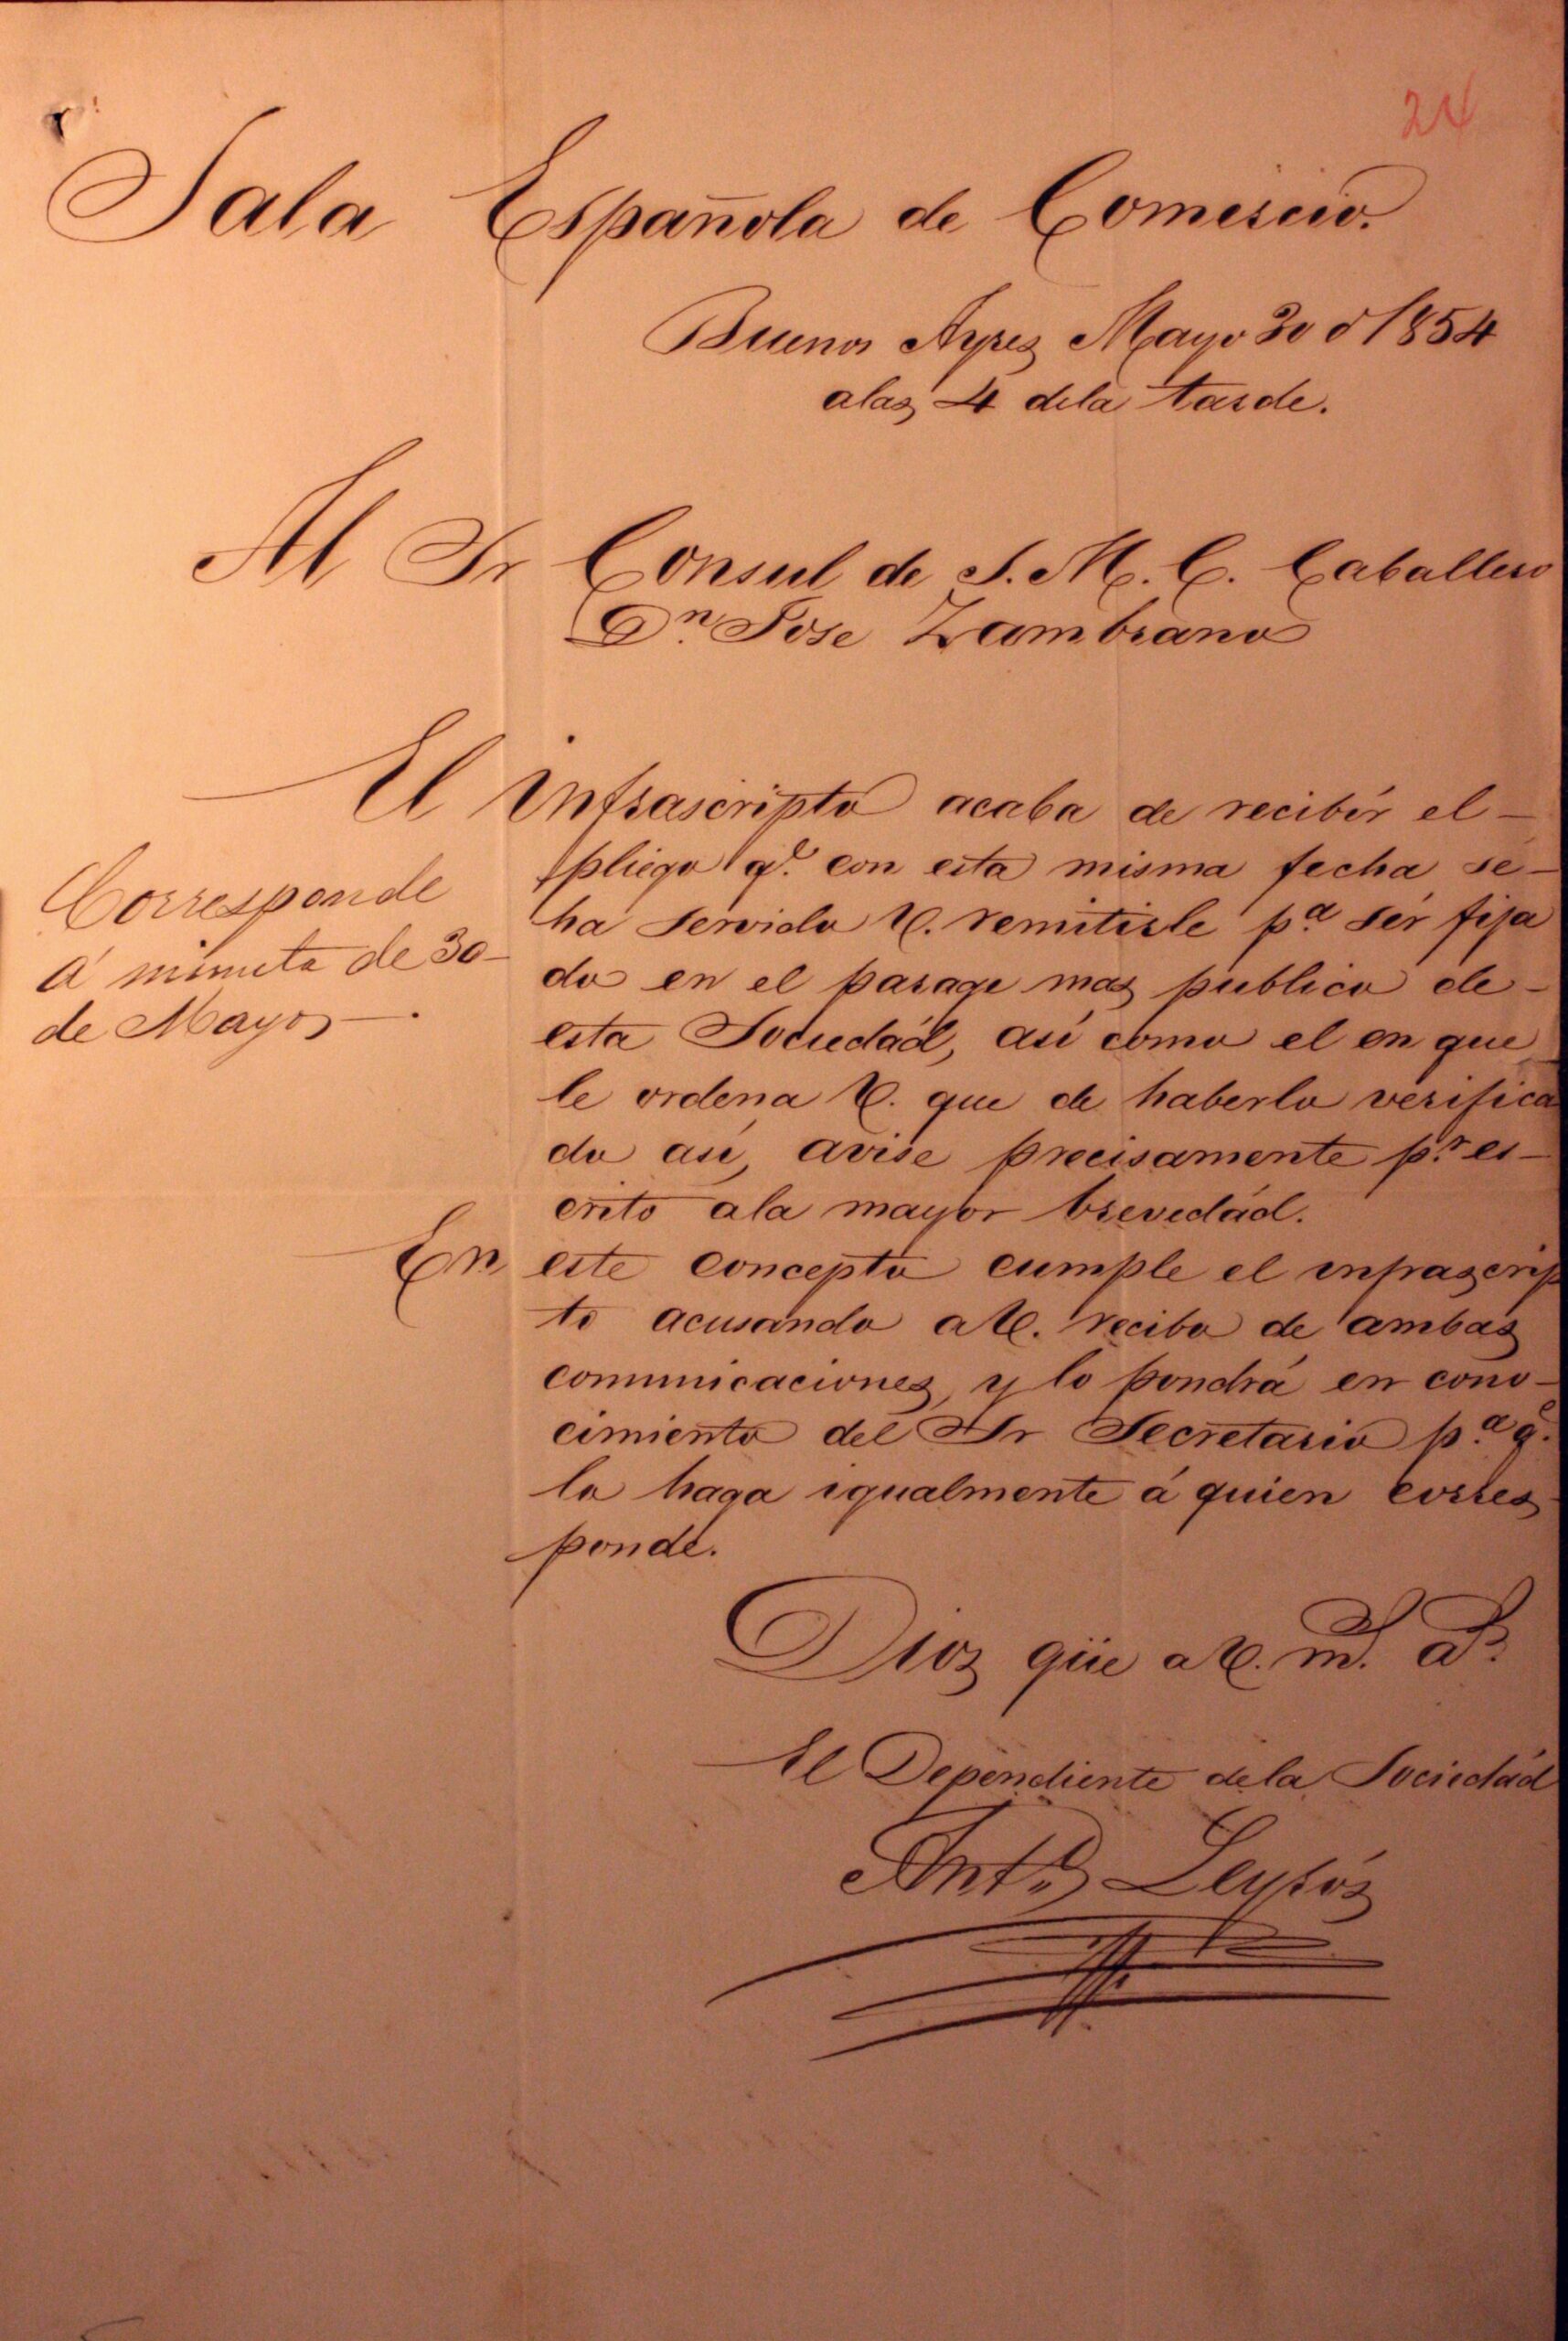 24
Sala Española de Comercio.
Buenos Ayres Mayo 30 d 1854
alas 4 dela tarde.
Al Sr Consul de S. M. C. Caballero
Dn. Jose Zambrano
El infrascripto acaba de recibir el-
pliego qe. con esta misma fecha se-
ha servido V. remitirle pa. sér fija
do en el parage mas publico de-
esta Sociedád, así como el en que
le ordena V. que de haberlo verifica
do así, avise precisamente pr. es-
crito ala mayor brevedád.
Corresponde
á minuta de 30-
de Mayo-.
En este concepto cumple el infrascrip
to acusando a V. recibo de ambas
comunicaciones, y lo pondrá en cono-
cimiento del Sr Secretario pa. qe.
lo haga igualmente á quien corres-
ponde.
Dios güe a V. ms. as.
El Dependiente dela Sociedád
Anto.